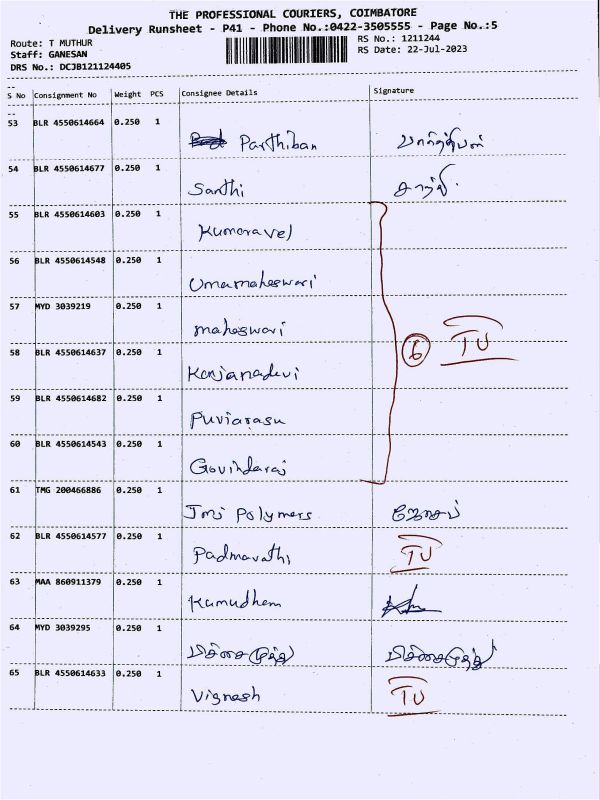 THE PROFESSIONAL COURIERS, COIMBATORE
Delivery Runsheet - P41 - Phone No.:0422-3505555 - Page No.:5
Route: T MUTHUR RS No.: 1211244
Staff: GANESAN RS Date: 22-Jul-2023
DRS No.: DCJB121124405
--
S No Consignment No Weight PCS Consignee Details Signature
--
53 BLR 4550614664 0.250 1
Parthiban பார்த்திபன்
54 BLR 4550614677 0.250 1
Santhi சாந்தி
55 BLR 4550614603 0.250 1
Kumaravel
56 BLR 4550614548 0.250 1
Umamaheswari
57 MYD 3039219 0.250 1
maheswari
6 TU
58 BLR 4550614637 0.250 1
Kanjanadevi
59 BLR 4550614682 0.250 1
Puviarasu
60 BLR 4550614543 0.250 1
Govindaraj
61 TMG 200466886 0.250 1
Polymers
62 BLR 4550614577 0.250 1
Padmavathi TU
63 MAA 860911379 0.250 1
Kumudham
64 MYD 3039295 0.250 1
பிச்சைமுத்து பிச்சைமுத்து
65 BLR 4550614633 0.250 1
Vignesh TU